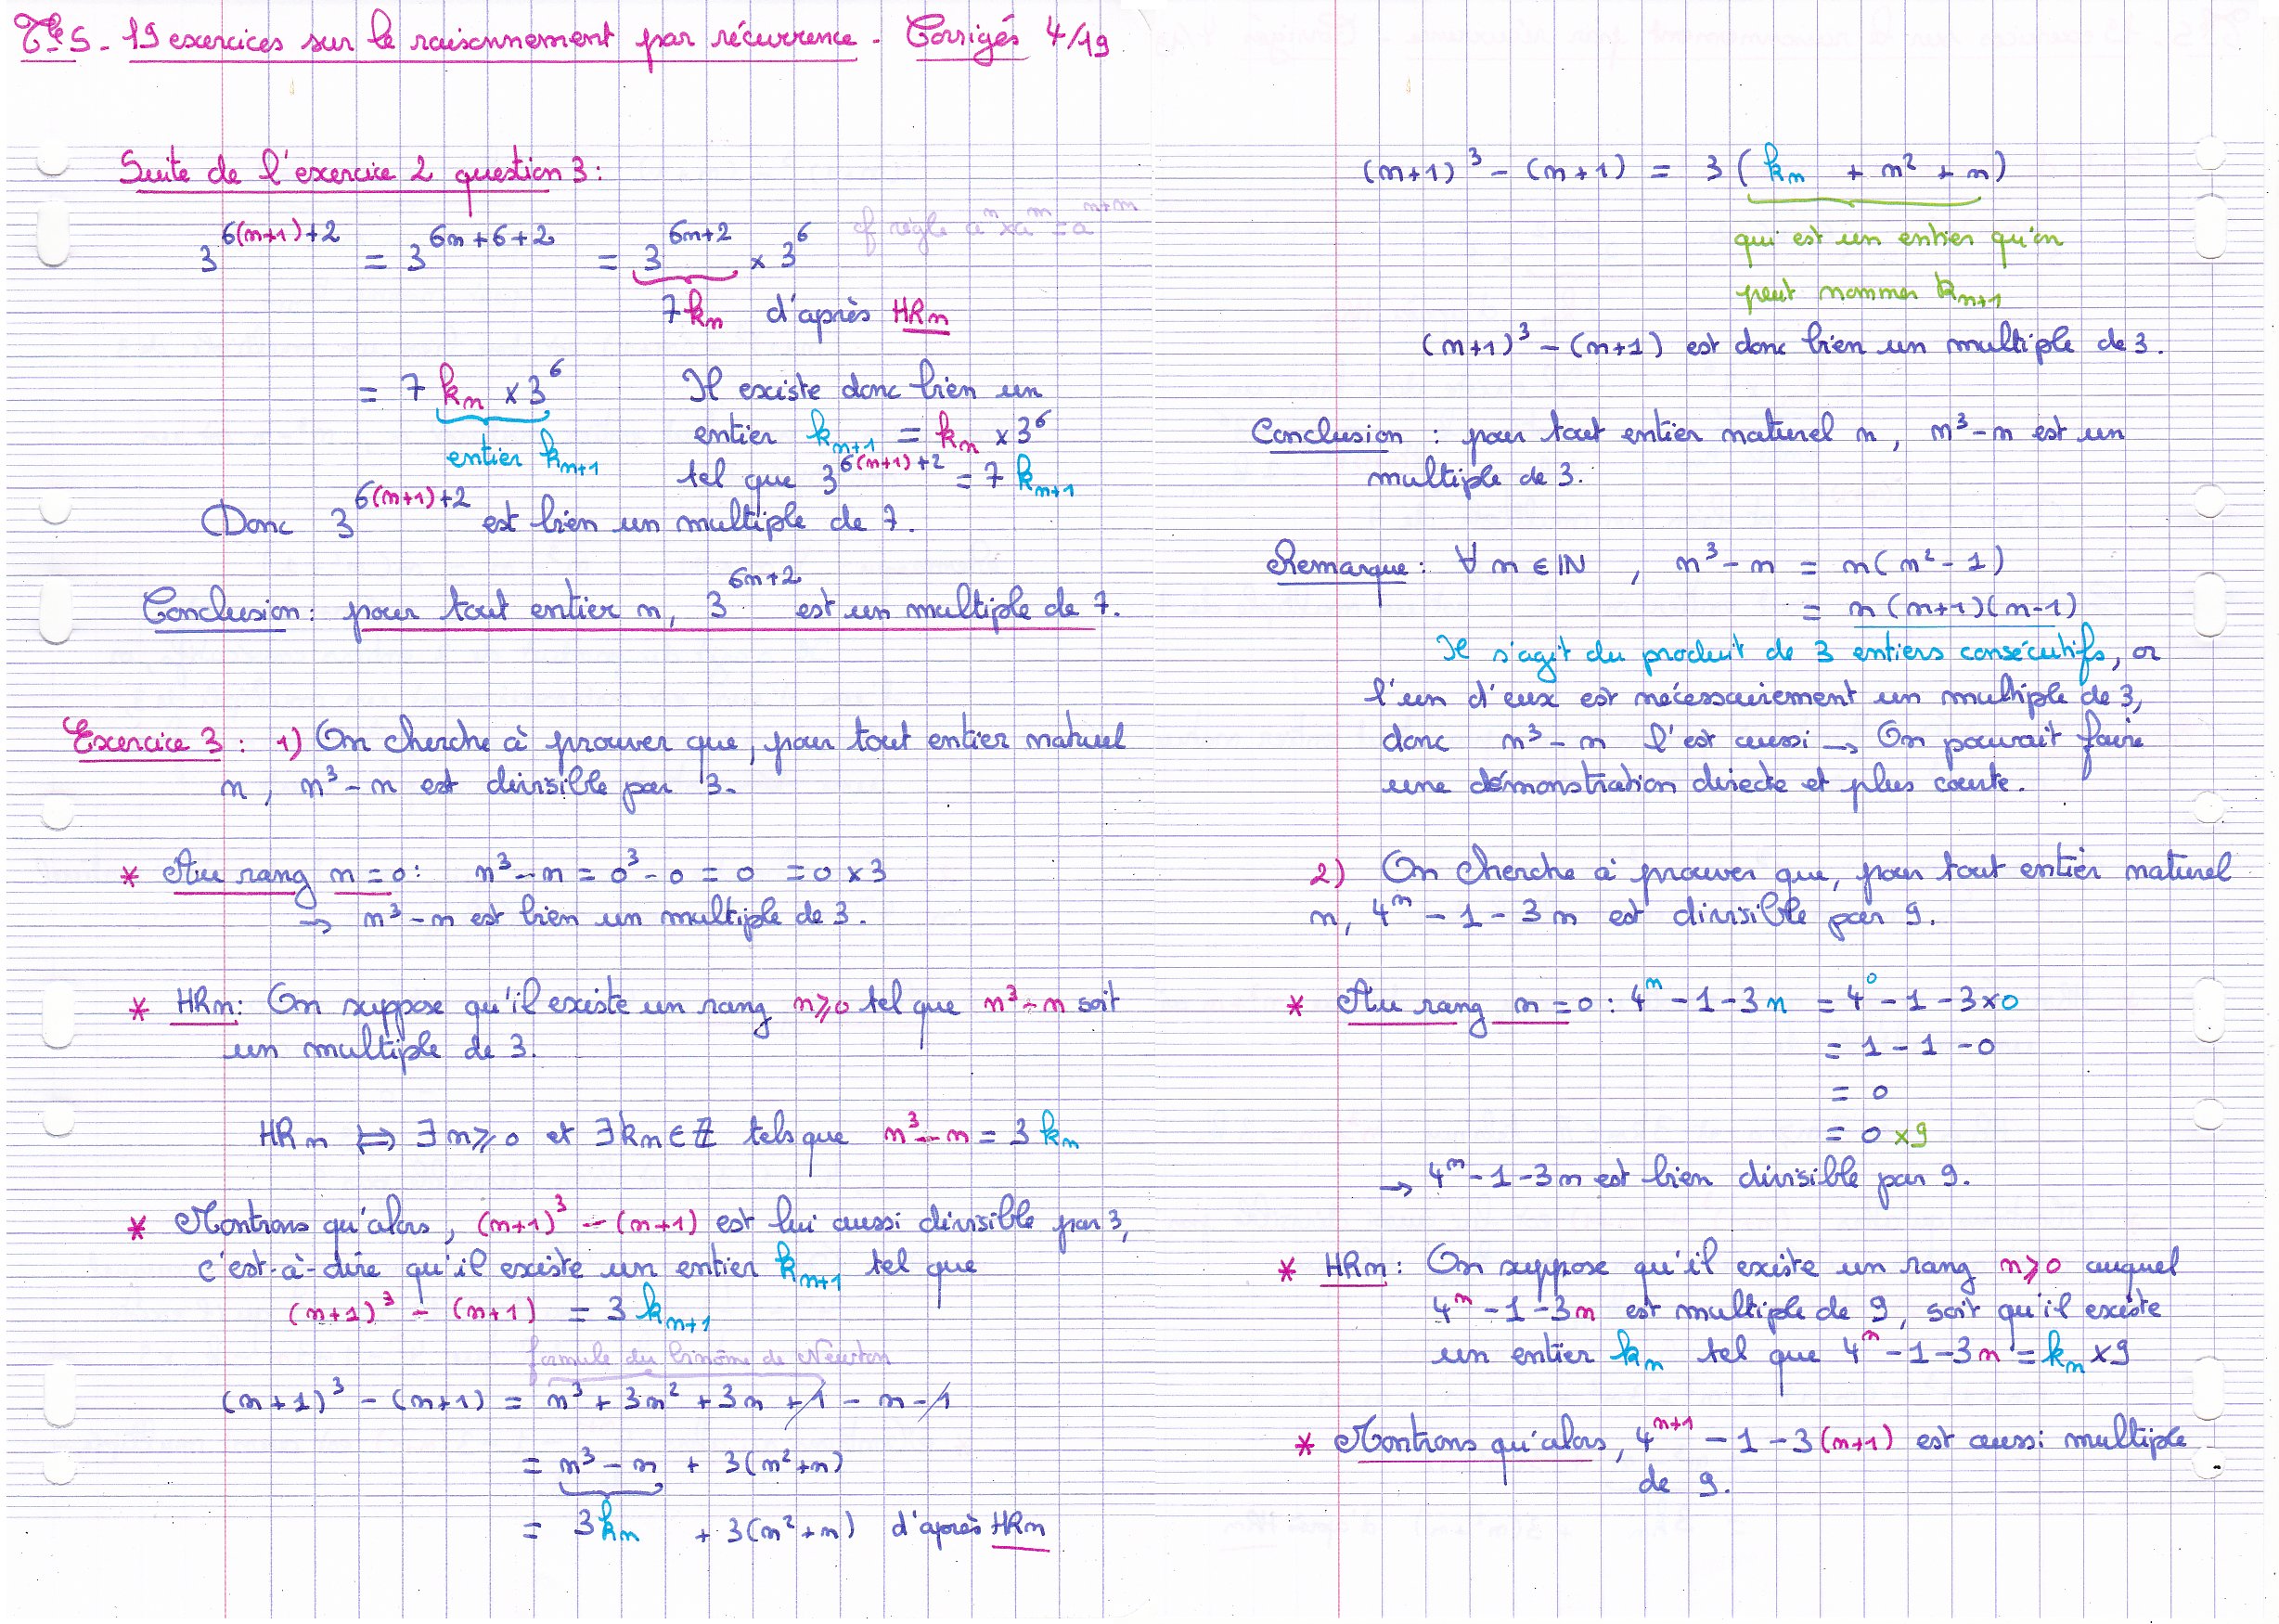 Tle S - 19 exercices sur le raisonnement par récurrence - Corrigés 4/19
Suite de l'exercice 2 question 3 :
3^(6(n+1)+2) = 3^(6n+6+2) = 3^(6n+2) × 3^6 cf règle a^n × a^m = a^(n+m)
7k_n d'après HRn
= 7 k_n × 3^6 Il existe donc bien un
entier k_(n+1) = k_n × 3^6
entier k_(n+1)
tel que 3^(6(n+1)+2) = 7 k_(n+1)
Donc 3^(6(n+1)+2) est bien un multiple de 7.
Conclusion : pour tout entier n, 3^(6n+2) est un multiple de 7.
Exercice 3 : 1) On cherche à prouver que, pour tout entier naturel
n, n³ - n est divisible par 3.
* Au rang n = 0 : n³ - n = 0³ - 0 = 0 = 0 × 3
→ n³ - n est bien un multiple de 3.
* HRn : On suppose qu'il existe un rang n ⩾ 0 tel que n³ - n soit
un multiple de 3.
HRn ⟺ ∃ n ⩾ 0 et ∃ k_n ∈ ℤ tels que n³ - n = 3 k_n
* Montrons qu'alors, (n+1)³ - (n+1) est lui aussi divisible par 3,
c'est-à-dire qu'il existe un entier k_(n+1) tel que
(n+1)³ - (n+1) = 3 k_(n+1)
formule du binôme de Newton
(n+1)³ - (n+1) = n³ + 3n² + 3n + 1 - n - 1
= n³ - n + 3(n²+n)
= 3k_n + 3(n²+n) d'après HRn
(n+1)³ - (n+1) = 3 (k_n + n² + n)
qui est un entier qu'on
peut nommer k_(n+1)
(n+1)³ - (n+1) est donc bien un multiple de 3.
Conclusion : pour tout entier naturel n, n³ - n est un
multiple de 3.
Remarque : ∀ n ∈ ℕ , n³ - n = n(n² - 1)
= n(n+1)(n-1)
Il s'agit du produit de 3 entiers consécutifs, or
l'un d'eux est nécessairement un multiple de 3,
donc n³ - n l'est aussi → On pourrait faire
une démonstration directe et plus courte.
2) On cherche à prouver que, pour tout entier naturel
n, 4^n - 1 - 3n est divisible par 9.
* Au rang n = 0 : 4^n - 1 - 3n = 4^0 - 1 - 3×0
= 1 - 1 - 0
= 0
= 0 × 9
→ 4^n - 1 - 3n est bien divisible par 9.
* HRn : On suppose qu'il existe un rang n ⩾ 0 auquel
4^n - 1 - 3n est multiple de 9, soit qu'il existe
un entier k_n tel que 4^n - 1 - 3n = k_n × 9
* Montrons qu'alors, 4^(n+1) - 1 - 3(n+1) est aussi multiple
de 9.